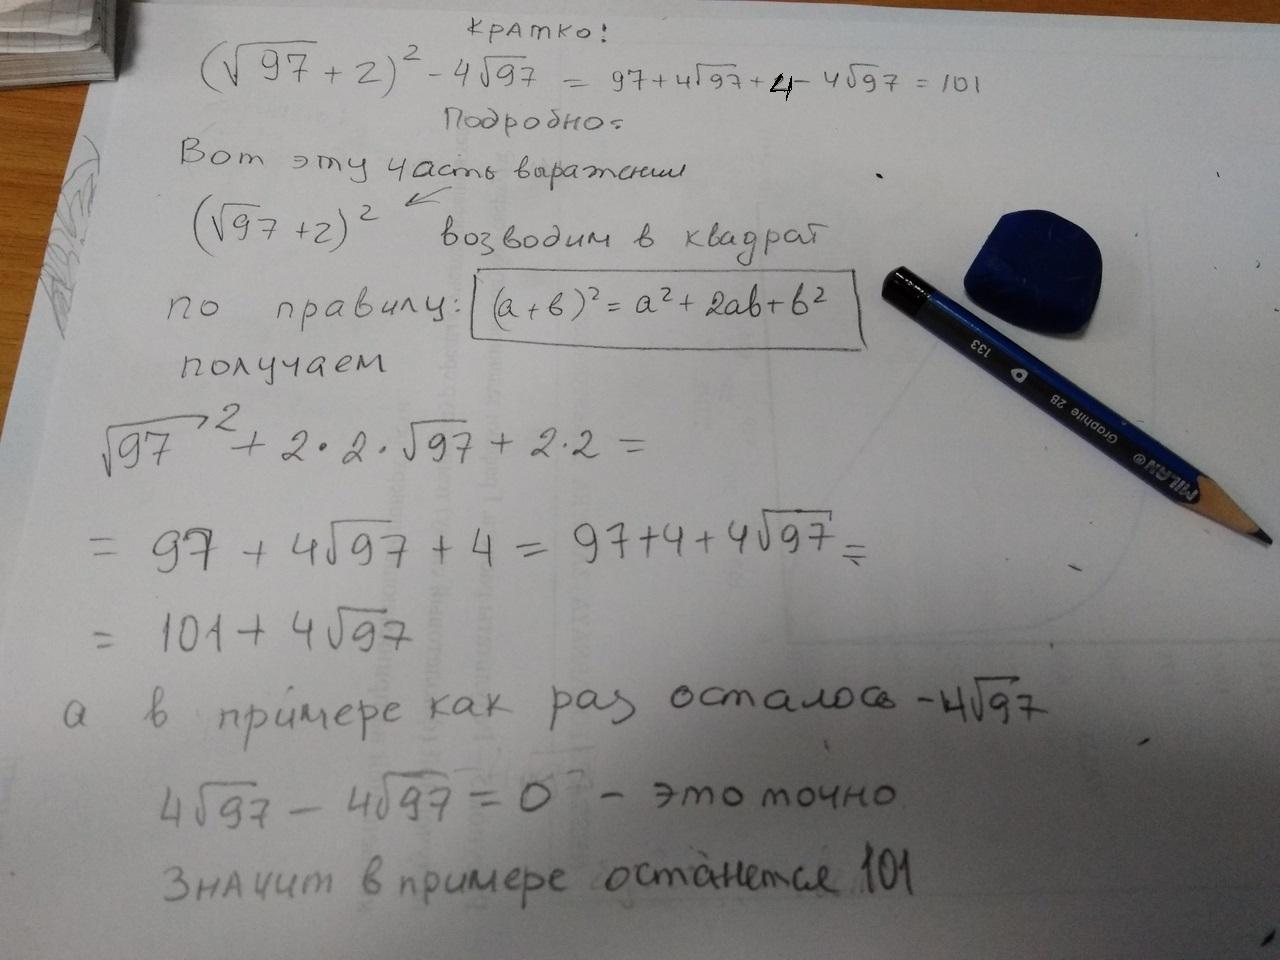 Кратко:
(√97 + 2)² - 4√97 = 97 + 4√97 + 4 - 4√97 = 101
Подробно:
Вот эту часть выражения
(√97 + 2)² ↙ возводим в квадрат
по правилу: (а + в)² = а² + 2ав + в²
получаем
√97² + 2·2·√97 + 2·2 =
= 97 + 4√97 + 4 = 97 + 4 + 4√97 =
= 101 + 4√97
а в примере как раз осталось -4√97
4√97 - 4√97 = 0 - это точно
Значит в примере останется 101
133
Graphite 2B
MILAN®